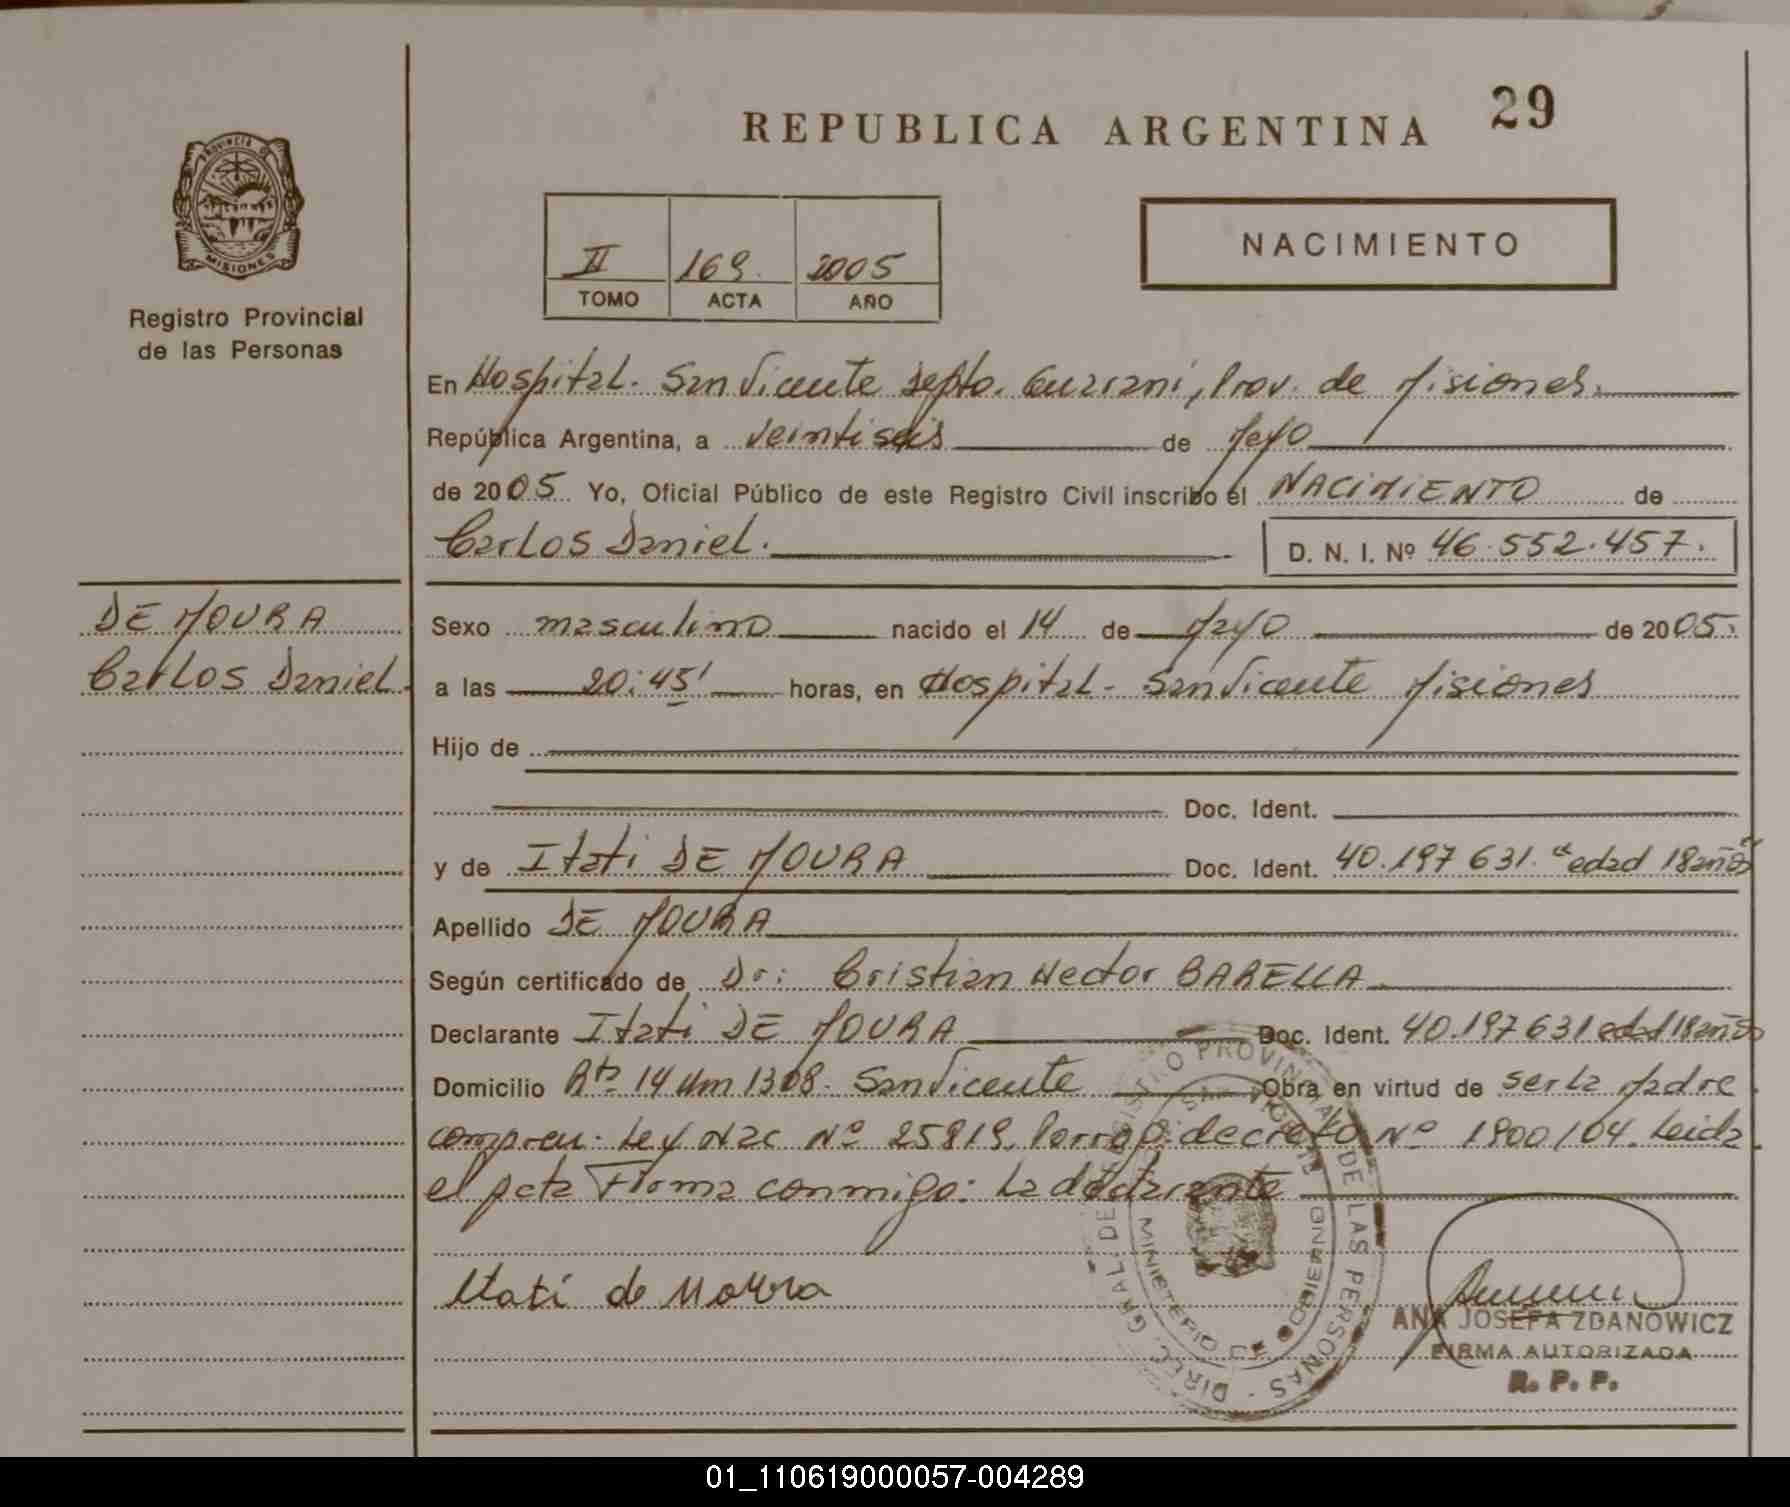 REPUBLICA ARGENTINA 29
PROVINCIA DE MISIONES
Registro Provincial
de las Personas
II 169. 2005
TOMO ACTA AÑO
NACIMIENTO
En Hospital. San Vicente Depto. Guarani, Prov. de Misiones.
República Argentina, a veintiseis de Mayo
de 2005 Yo, Oficial Público de este Registro Civil inscribo el NACIMIENTO de
Carlos Daniel. D. N. I. Nº 46.552.457.
DE MOURA
Carlos Daniel.
Sexo masculino nacido el 14 de Mayo de 2005.
a las 20:45' horas, en Hospital - San Vicente Misiones
Hijo de
Doc. Ident.
y de Itati DE MOURA Doc. Ident. 40.197 631. "edad 18 años"
Apellido DE MOURA
Según certificado de Dr: Cristian Hector BARELLA
Declarante Itati DE MOURA Doc. Ident. 40.197 631 edad 18 años
Domicilio Rta 14 Km 1308. San Vicente Obra en virtud de ser la Madre
compren. Ley Nac Nº 25819. Prorrog. decreto Nº 1900/04. Leida
el acta Firma conmigo: la declarante
Itatí de Moura
ANA JOSEFA ZDANOWICZ
FIRMA AUTORIZADA
R. P. P.
DIREC. GRAL. DE REGISTRO PROVINCIAL DE LAS PERSONAS -
MINISTERIO DE GOBIERNO
01_110619000057-004289